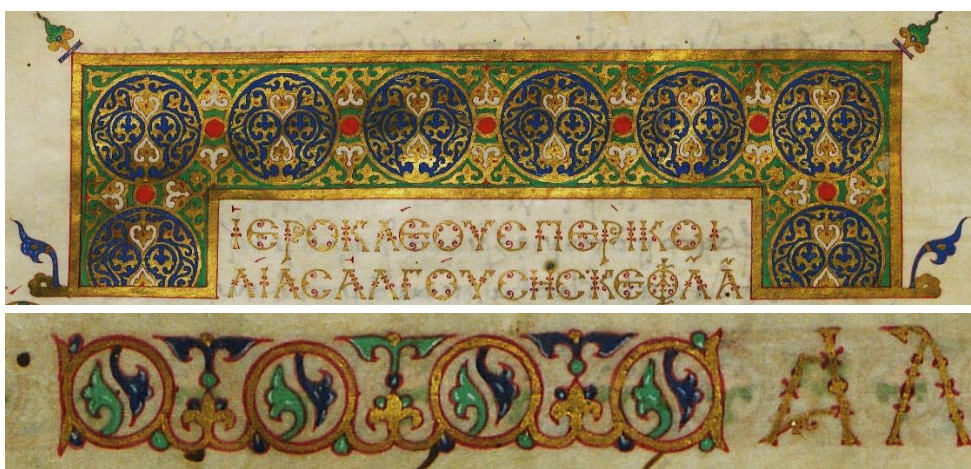 ἹΕΡΟΚΛΕΟΥϹ ΠΕΡῚ ΚΟΙ
ΛΊΑϹ ἈΛΓΟΎϹΗϹ ΚΕΦΛ Α
ΑΛ